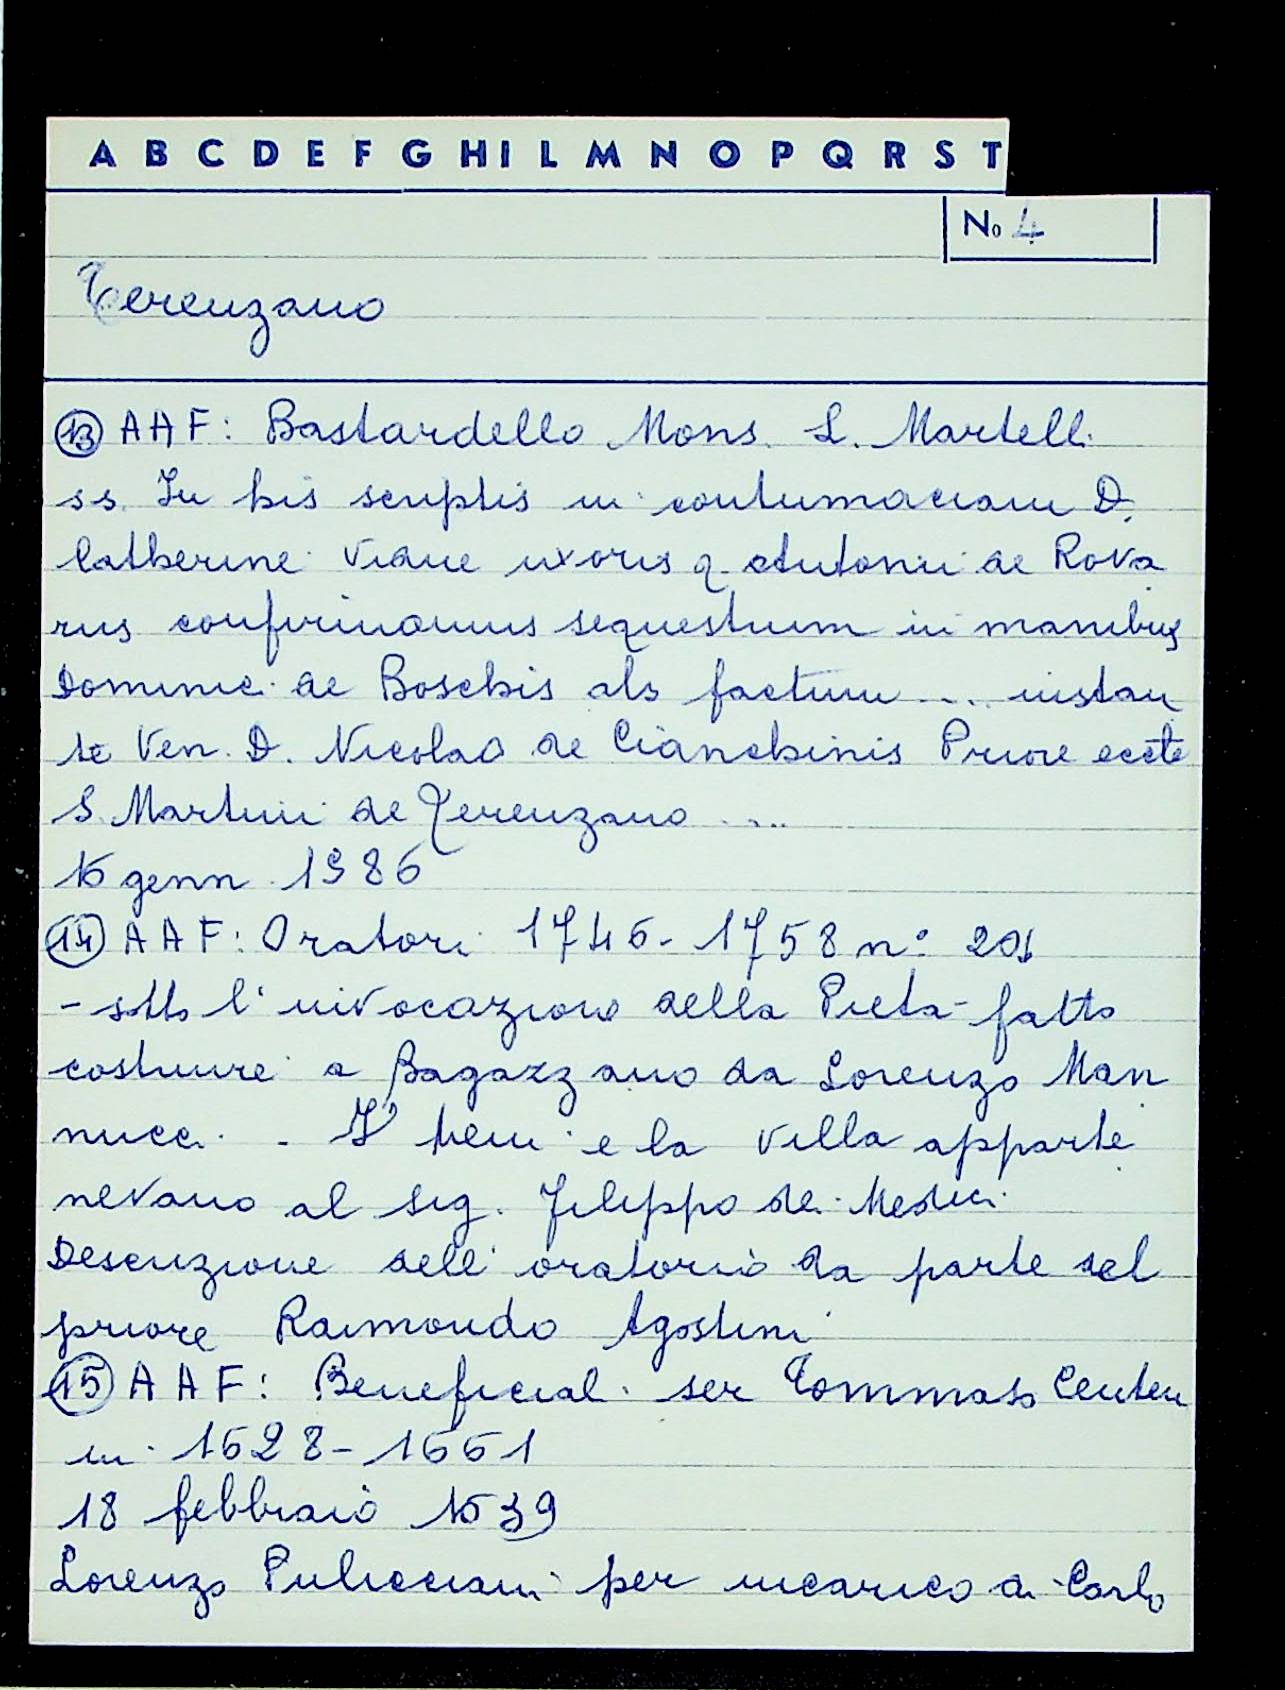 A B C D E F G H I L M N O P Q R S T
No 4
Terenzano
13 AAF: Bastardello Mons. L. Martelli
ss. In his scriptis in contumaciam D.
Catherine vidue uxoris q. Antonii de Rova
rus confirmamus sequestrum in manibus
Dominici de Boschis als factum .... instan
te Ven. D. Nicolao de Cianchinis Priore eccte
S. Martini de Terenzano ....
16 genn. 1586
14 AAF: Oratori 1746-1758 n° 201
- sotto l'invocazione della Pietà - fatto
costruire a Bagazzano da Lorenzo Man
nucci. - I beni e la villa apparte
nevano al sig. Filippo de' Medici.
Descrizione dell'oratorio da parte del
priore Raimondo Agostini
15 AAF: Beneficial. ser Tommaso Centen
ni 1628-1661
18 febbraio 1639
Lorenzo Pulicciani per incarico di Carlo